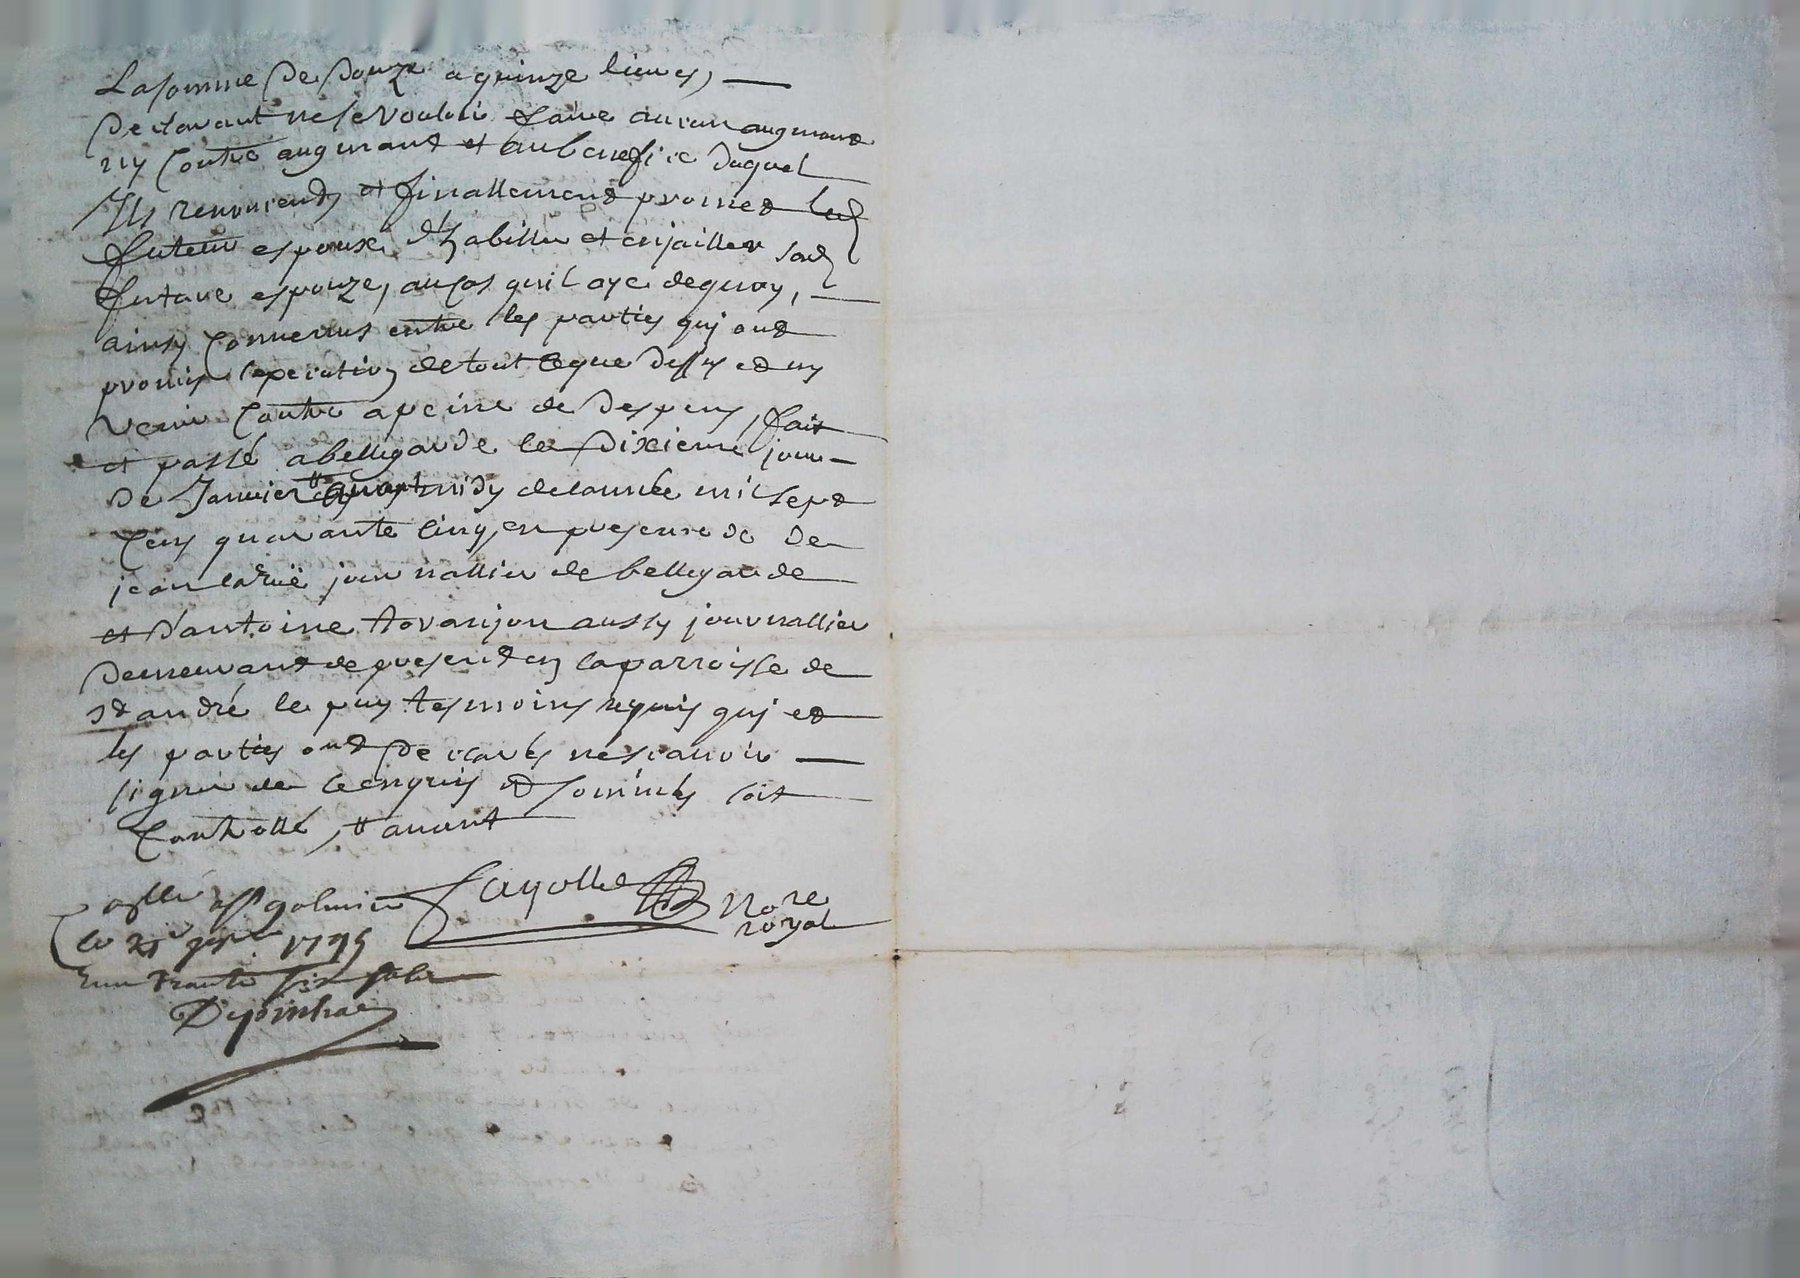 La somme de douze a quinze livres,
declarant ne se vouloir faire aucun augmant
ny contre augmant et au benefice duquel
Ils renoncends et finallement promet led
futeur espoux d'habiller et enjailler sad
futeure espouze, au cas quil aye dequoy,
ainsy convenus entre les parties qui ont
promis l'execution de tout ce que dessus et ny
venir contre a peine de despens, fait
et passé a bellegarde le dixieme jour
de Janvier avant midy de lannée mil sept
cens quarante cinq, en presence de de
jean laruë journallier de bellegarde
et d'antoine tovanjon aussy journallier
demeurant de present en la parroisse de
st andré le puy tesmoins requis qui et
les parties ont declarés ne scavoir
signer de ce enquis et sommés soit
controllé, avant
Fayolle No re
royal
a st galmier
le 1745
six sols